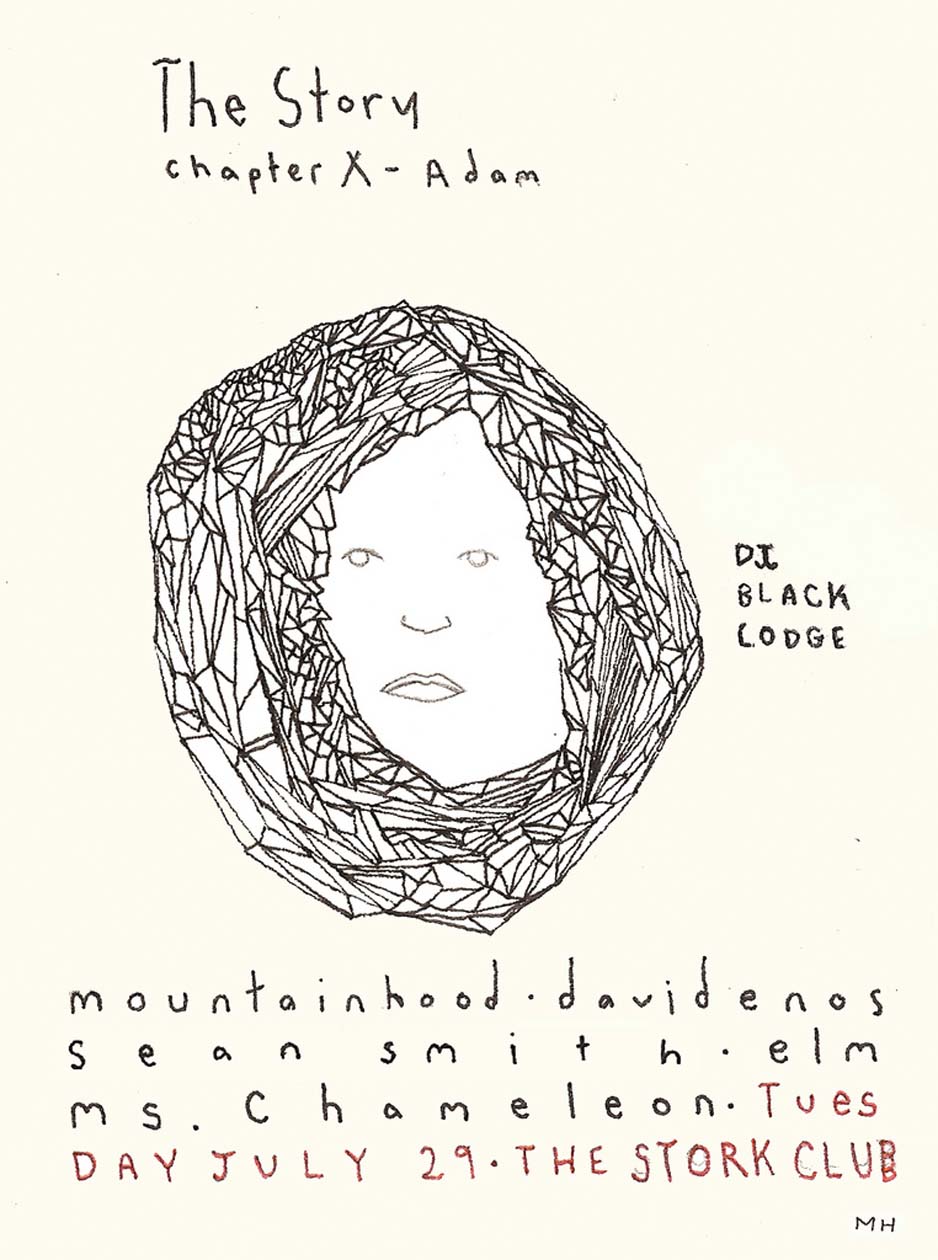 The Story
chapter X - Adam
DJ
BLACK
LODGE
mountainhood · davidenos
sean smith · elm
ms. Chameleon · Tues
DAY JULY 29 · THE STORK CLUB
MH